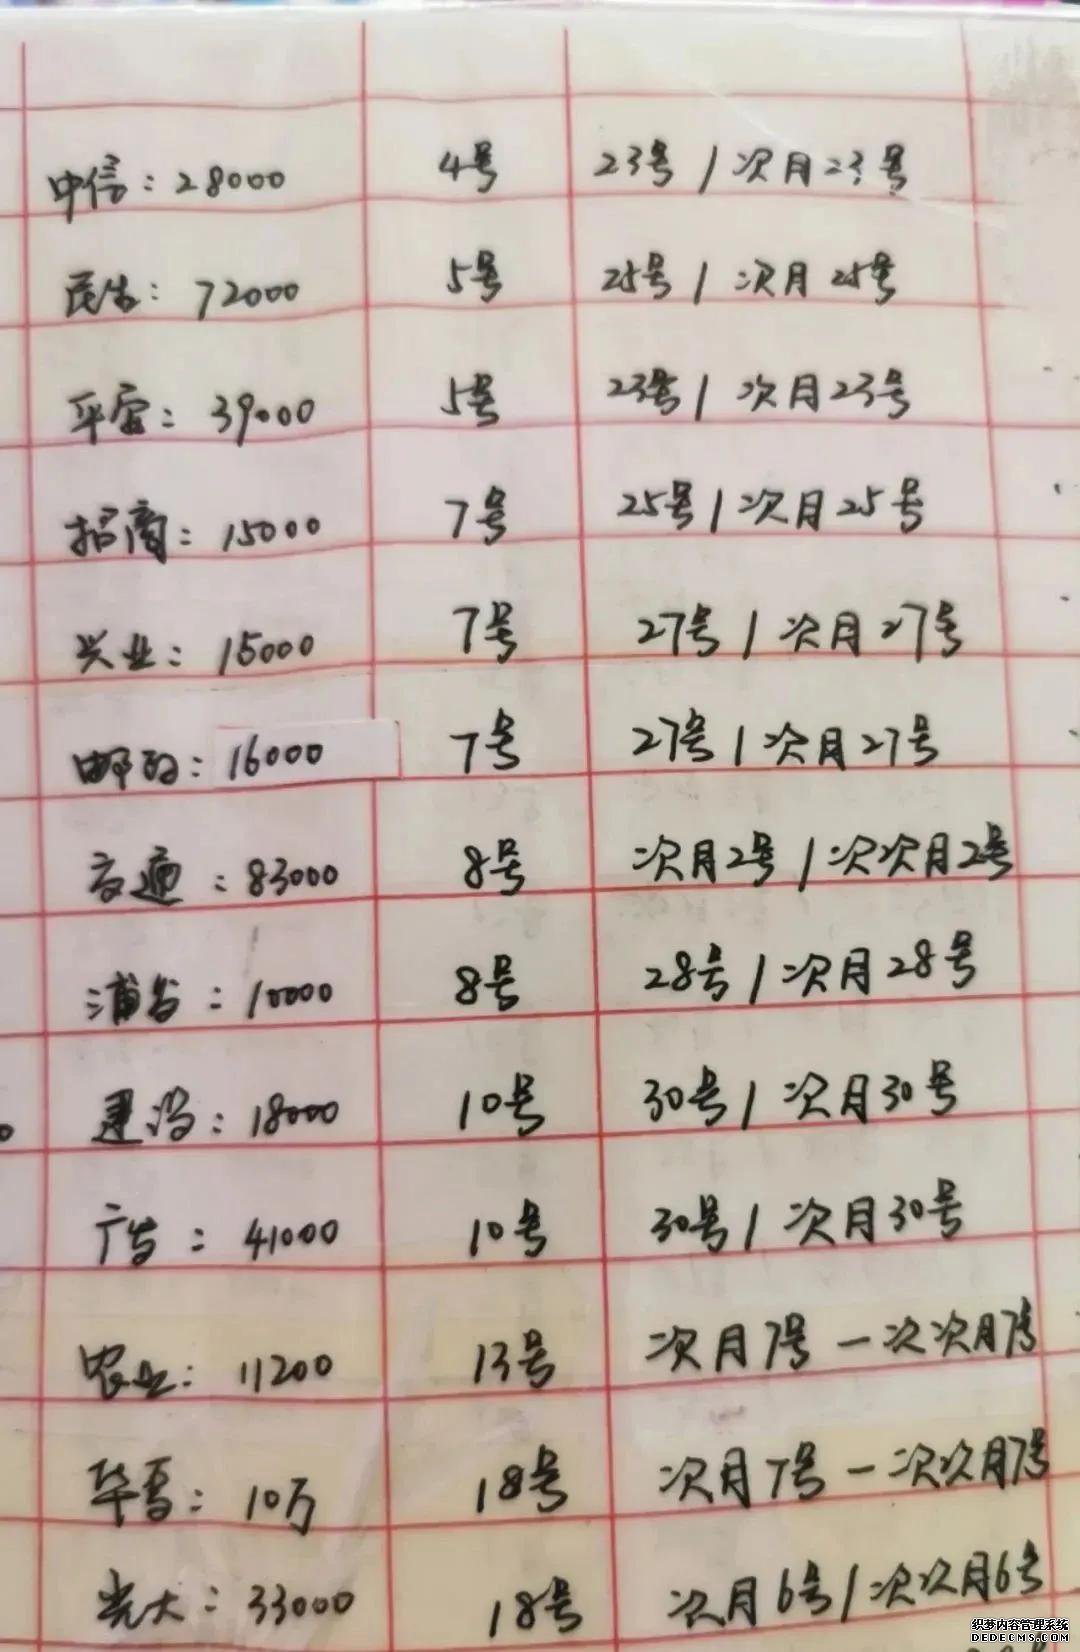 中信：28000 4号 23号/次月23号
民生：72000 5号 25号/次月25号
平安：39000 5号 23号/次月23号
招商：15000 7号 25号/次月25号
兴业：15000 7号 27号/次月27号
邮政：16000 7号 27号/次月27号
交通：83000 8号 次月2号/次次月2号
浦发：10000 8号 28号/次月28号
建设：18000 10号 30号/次月30号
广发：41000 10号 30号/次月30号
农业：11200 13号 次月7号一次次月7号
华夏：10万 18号 次月7号一次次月7号
光大：33000 18号 次月6号/次次月6号
织梦内容管理系统
DEDECMS.COM